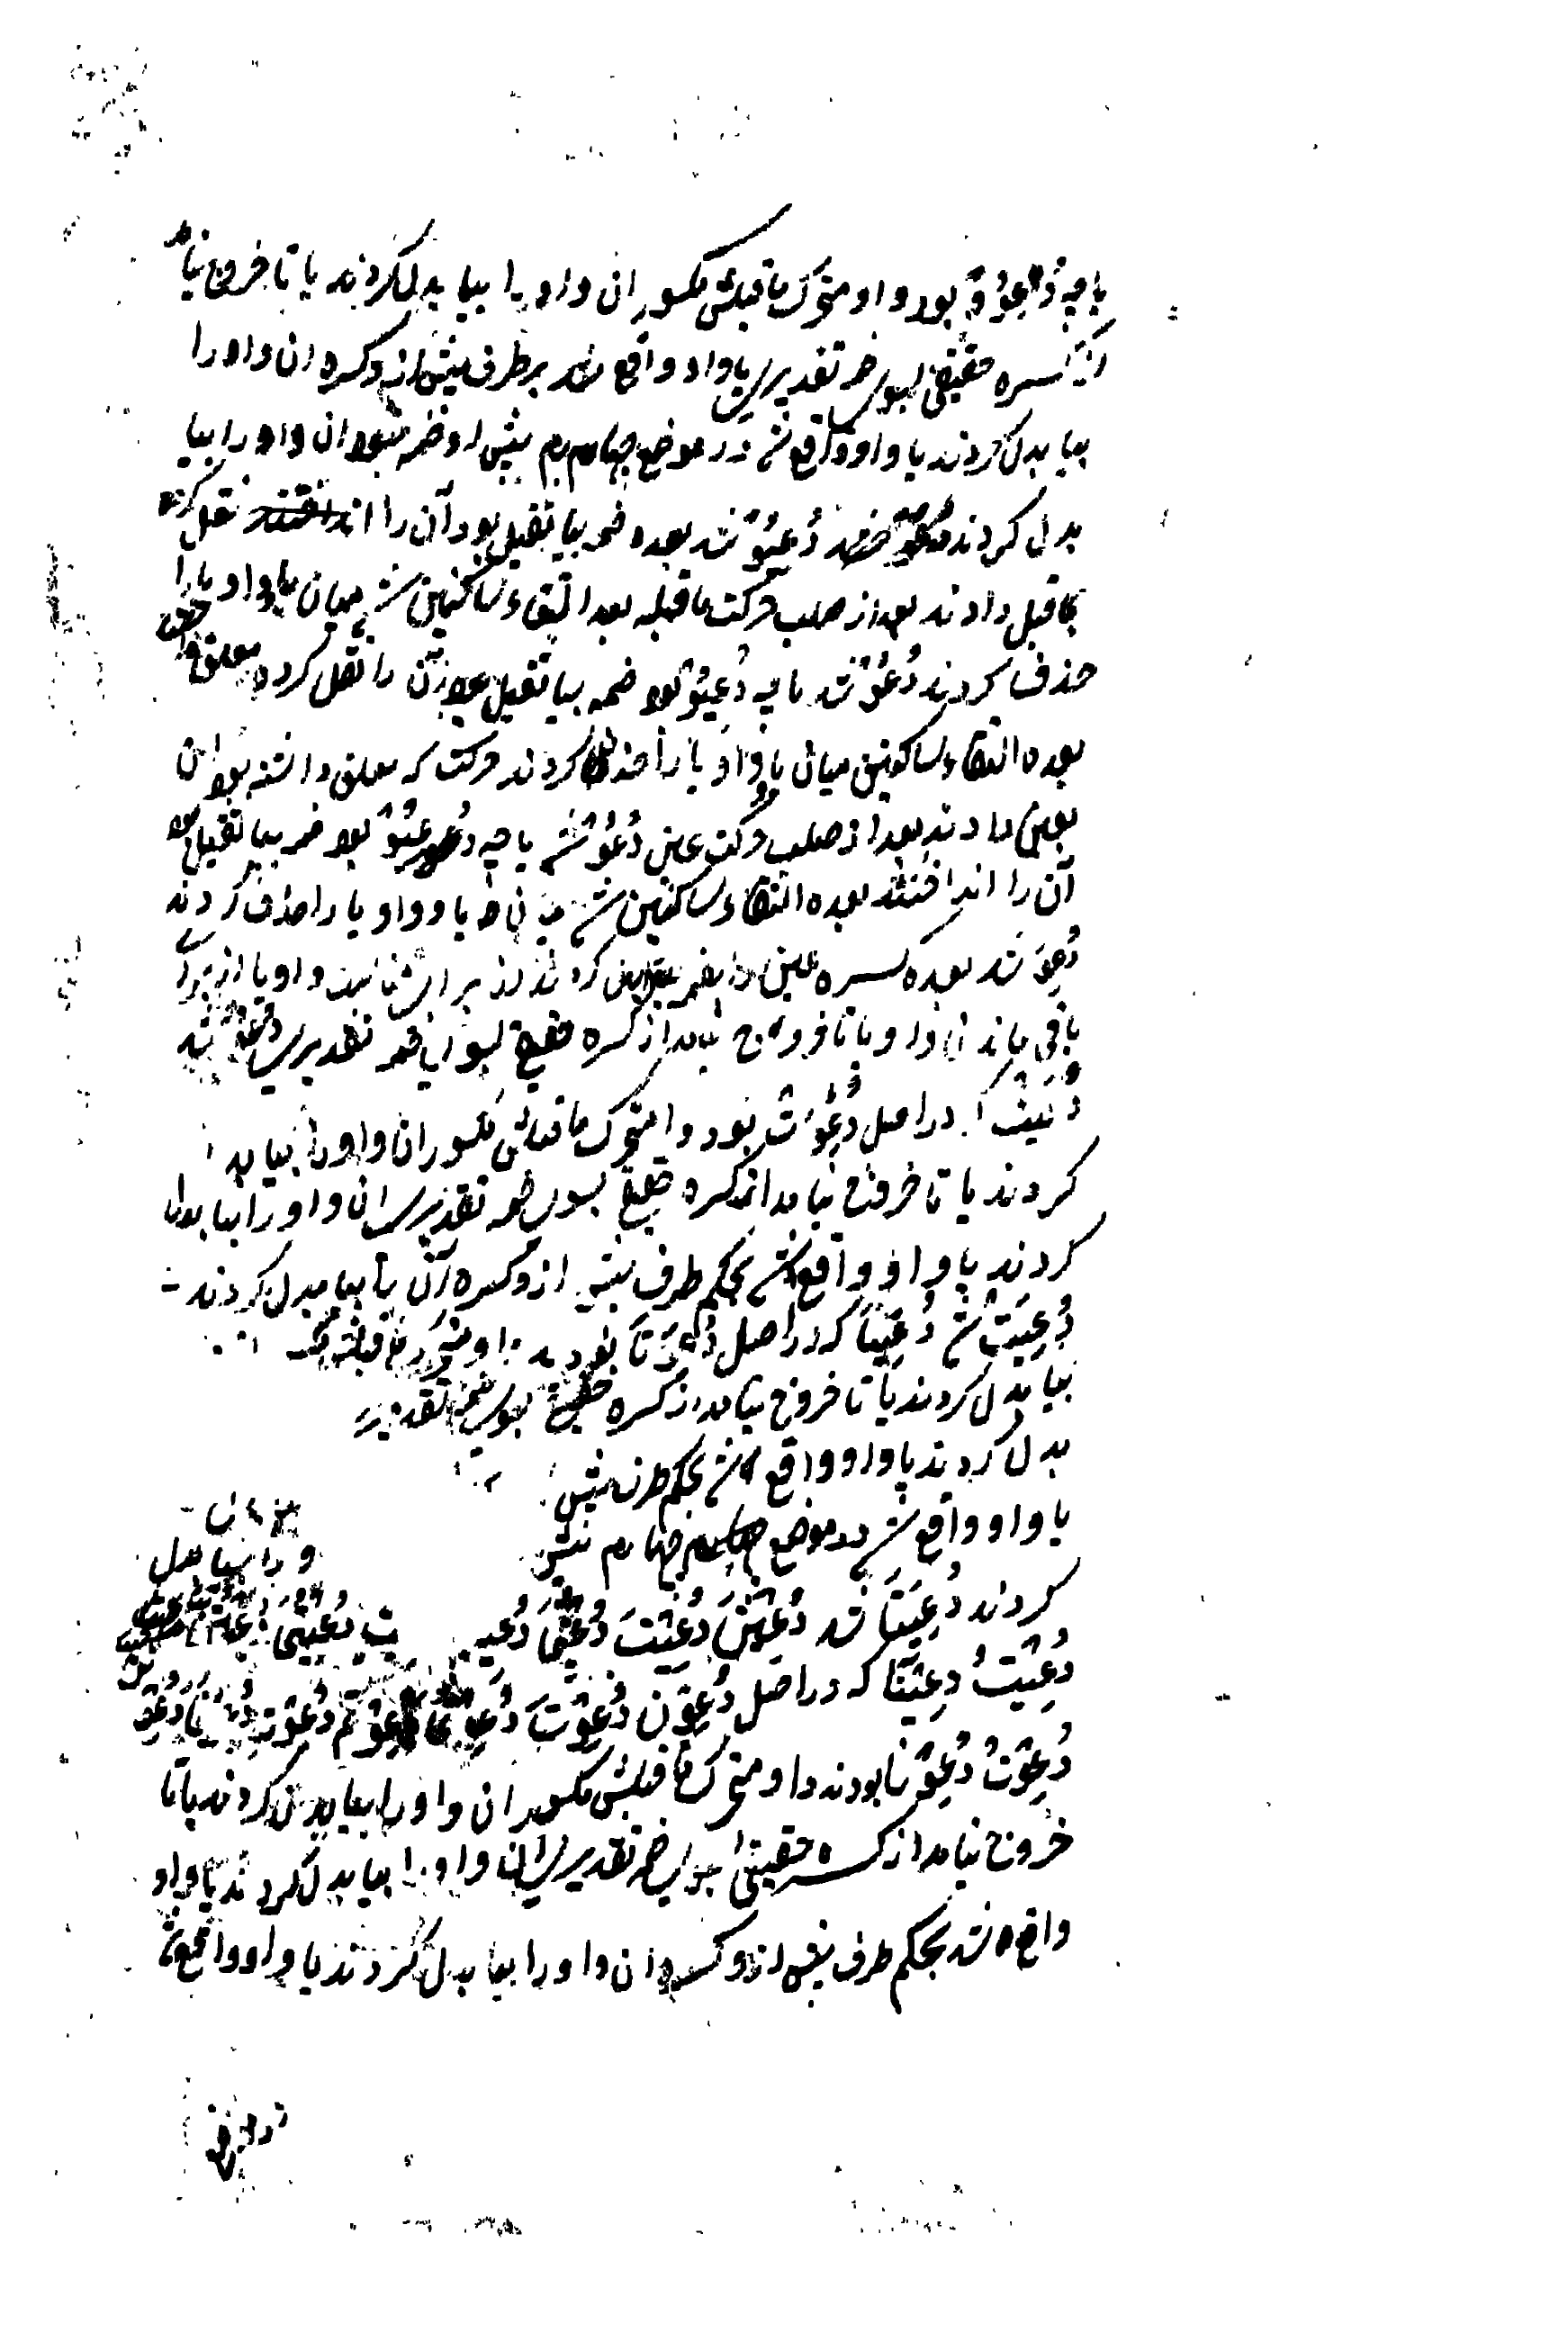 یا چه دُعِوُوْ بود واو متحرک ما قبلش مکسور ان واو را بیا بدل کردند یا تا خروج نیاید
از کسره حقیقی بسوی ضمه تقدیری یا واو واقع شد برطرف پیش از و کسره ان واو را
بیا بدل کردند یا واو واقع شد در موضع چهارم پیش از و ضمه نبود ان واو را بیا
بدل کردند دُعِیُوْ شد بعده ضمه بیا ثقیل بود آن را انداختند نقل کرده
بما قبل دادند بعد از صلب حرکت ما قبله بعد التقاء ساکنین شد میان یا واو یا را
حذف کردند دُعُوْ شد یا چه دُعِیُوْ بود ضمه بیا ثقیل بود آن را نقل کرده معلق
بعده التقاء ساکنین میان یا واو یا را حذف کردند حرکت که معلق داشته بود ان
بعین دادند بعد از صلب حرکت عین دُعُوْ شد یا چه دُعِیُوْ بود ضمه بیا ثقیل بود
آن را انداختند بعده التقاء ساکنین شد میان یا و واو یا را حذف کردند
دُعِوْ شد بعده کسره عین را بضمه بدل کردند از برای مناسبت واو یا از برای
باقی ماندن واو یا تا خروج نیاید از کسره حقیقی بسوی ضمه تقدیری دُعُوْ شد
دُعِیَتْ که در اصل دُعِوَتْ بود واو متحرک ما قبلش مکسور ان واو را بیا بدل
کردند یا تا خروج نیاید از کسره حقیقی بسوی ضمه تقدیری ان واو را بیا بدل
کردند یا واو واقع شد بحکم طرف پیش از و کسره آن یا بیا بدل کردند
دُعِیَتْ شد دُعِیَتَا که در اصل دُعِوَتَا بود واو متحرک ما قبلش
بیا بدل کردند یا تا خروج نیاید از کسره حقیقی بسوی ضمه تقدیری
بدل کردند یا واو واقع شد بحکم طرف پیش
یا واو واقع شد در موضع چهارم پیش
کردند دُعِیَتَا شد دُعِیْنَ دُعِیْتَ دُعِیْتُمَا
دُعِیْتُ دُعِیْنَا که در اصل دُعِوْنَ دُعِوْتَ دُعِوْتُمَا دُعِوْتُمْ دُعِوْتِ
دُعِوْتُ دُعِوْنَا بودند واو متحرک ما قبلش مکسور ان واو را بیا بدل کردند یا تا
خروج نیاید از کسره حقیقی بسوی ضمه تقدیری ان واو را بیا بدل کردند یا واو
واقع شد بحکم طرف پیش از و کسره ان واو را بیا بدل کردند یا واو واقع شد